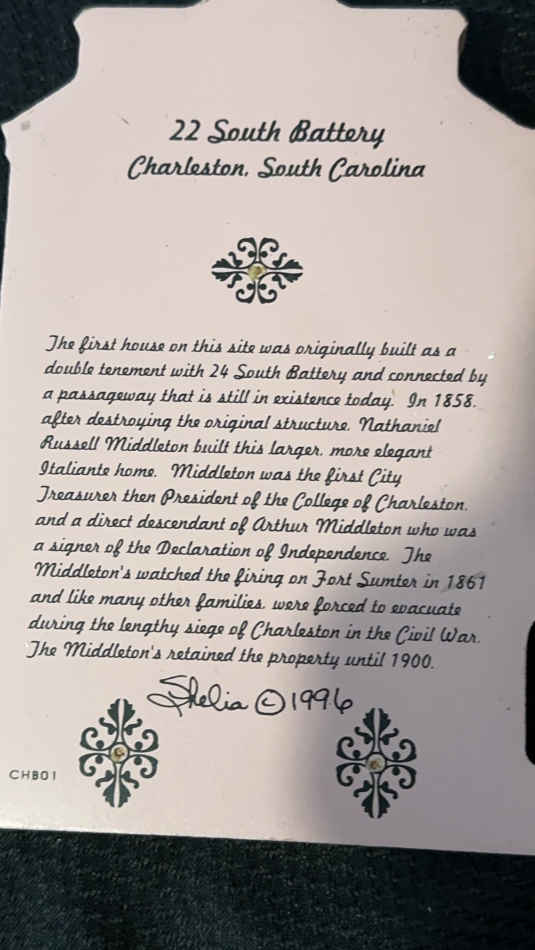 22 South Battery
Charleston, South Carolina
The first house on this site was originally built as a
double tenement with 24 South Battery and connected by
a passageway that is still in existence today. In 1858,
after destroying the original structure, Nathaniel
Russell Middleton built this larger, more elegant
Italiante home. Middleton was the first City
Treasurer then President of the College of Charleston,
and a direct descendant of Arthur Middleton who was
a signer of the Declaration of Independence. The
Middleton's watched the firing on Fort Sumter in 1861
and like many other families, were forced to evacuate
during the lengthy siege of Charleston in the Civil War.
The Middleton's retained the property until 1900.
Shelia © 1996
CHB01